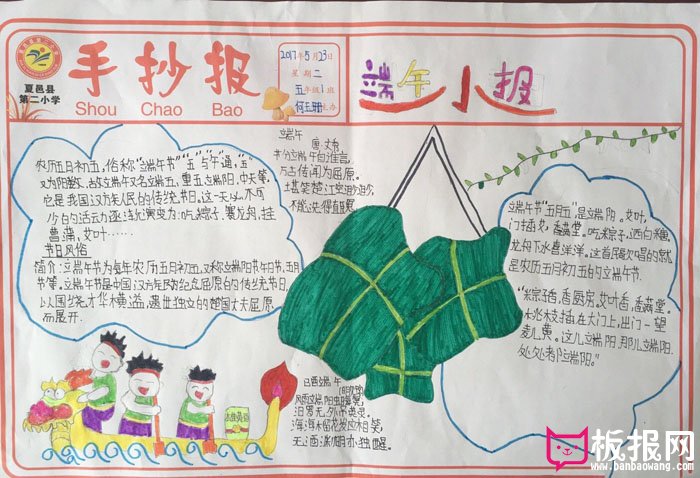 夏邑县
第二小学
手抄报
Shou Chao Bao
2017年5月23日
星期二
五年级1班
端午小报
农历五月初五，俗称"端午节"，"五"与"午"通，"五"
它是我国汉族人民的传统节日。这一天必不可
少的活动逐渐演变为：吃粽子，赛龙舟，挂
菖蒲，艾叶……
节日风俗
简介：端午节为每年农历五月初五，又称端阳节午日节，五月
节等。端午节是中国汉族人民纪念屈原的传统节日，
以围绕才华横溢、遗世独立的楚国大夫屈原
而展开。
端午
唐·文秀
节分端午自谁言，
万古传闻为屈原。
堪笑楚江空渺渺，
不能洗得直臣冤
端午节"五月五"是端阳。艾叶，
门插艾，香满堂。吃粽子，洒白糖，
龙舟下水喜洋洋。"这首民歌唱的就
是农历五月初五的端午节
"粽子香，香厨房。艾叶香，香满堂。
桃枝插在大门上，出门一望
麦儿黄。这儿端阳，那儿端阳，
处处都端阳。"
己酉端午
风雨端阳生晦冥，
汨罗无处吊英灵。
海榴花发应相笑，
无酒渊明亦独醒。
板报网
www.banbaowang.com